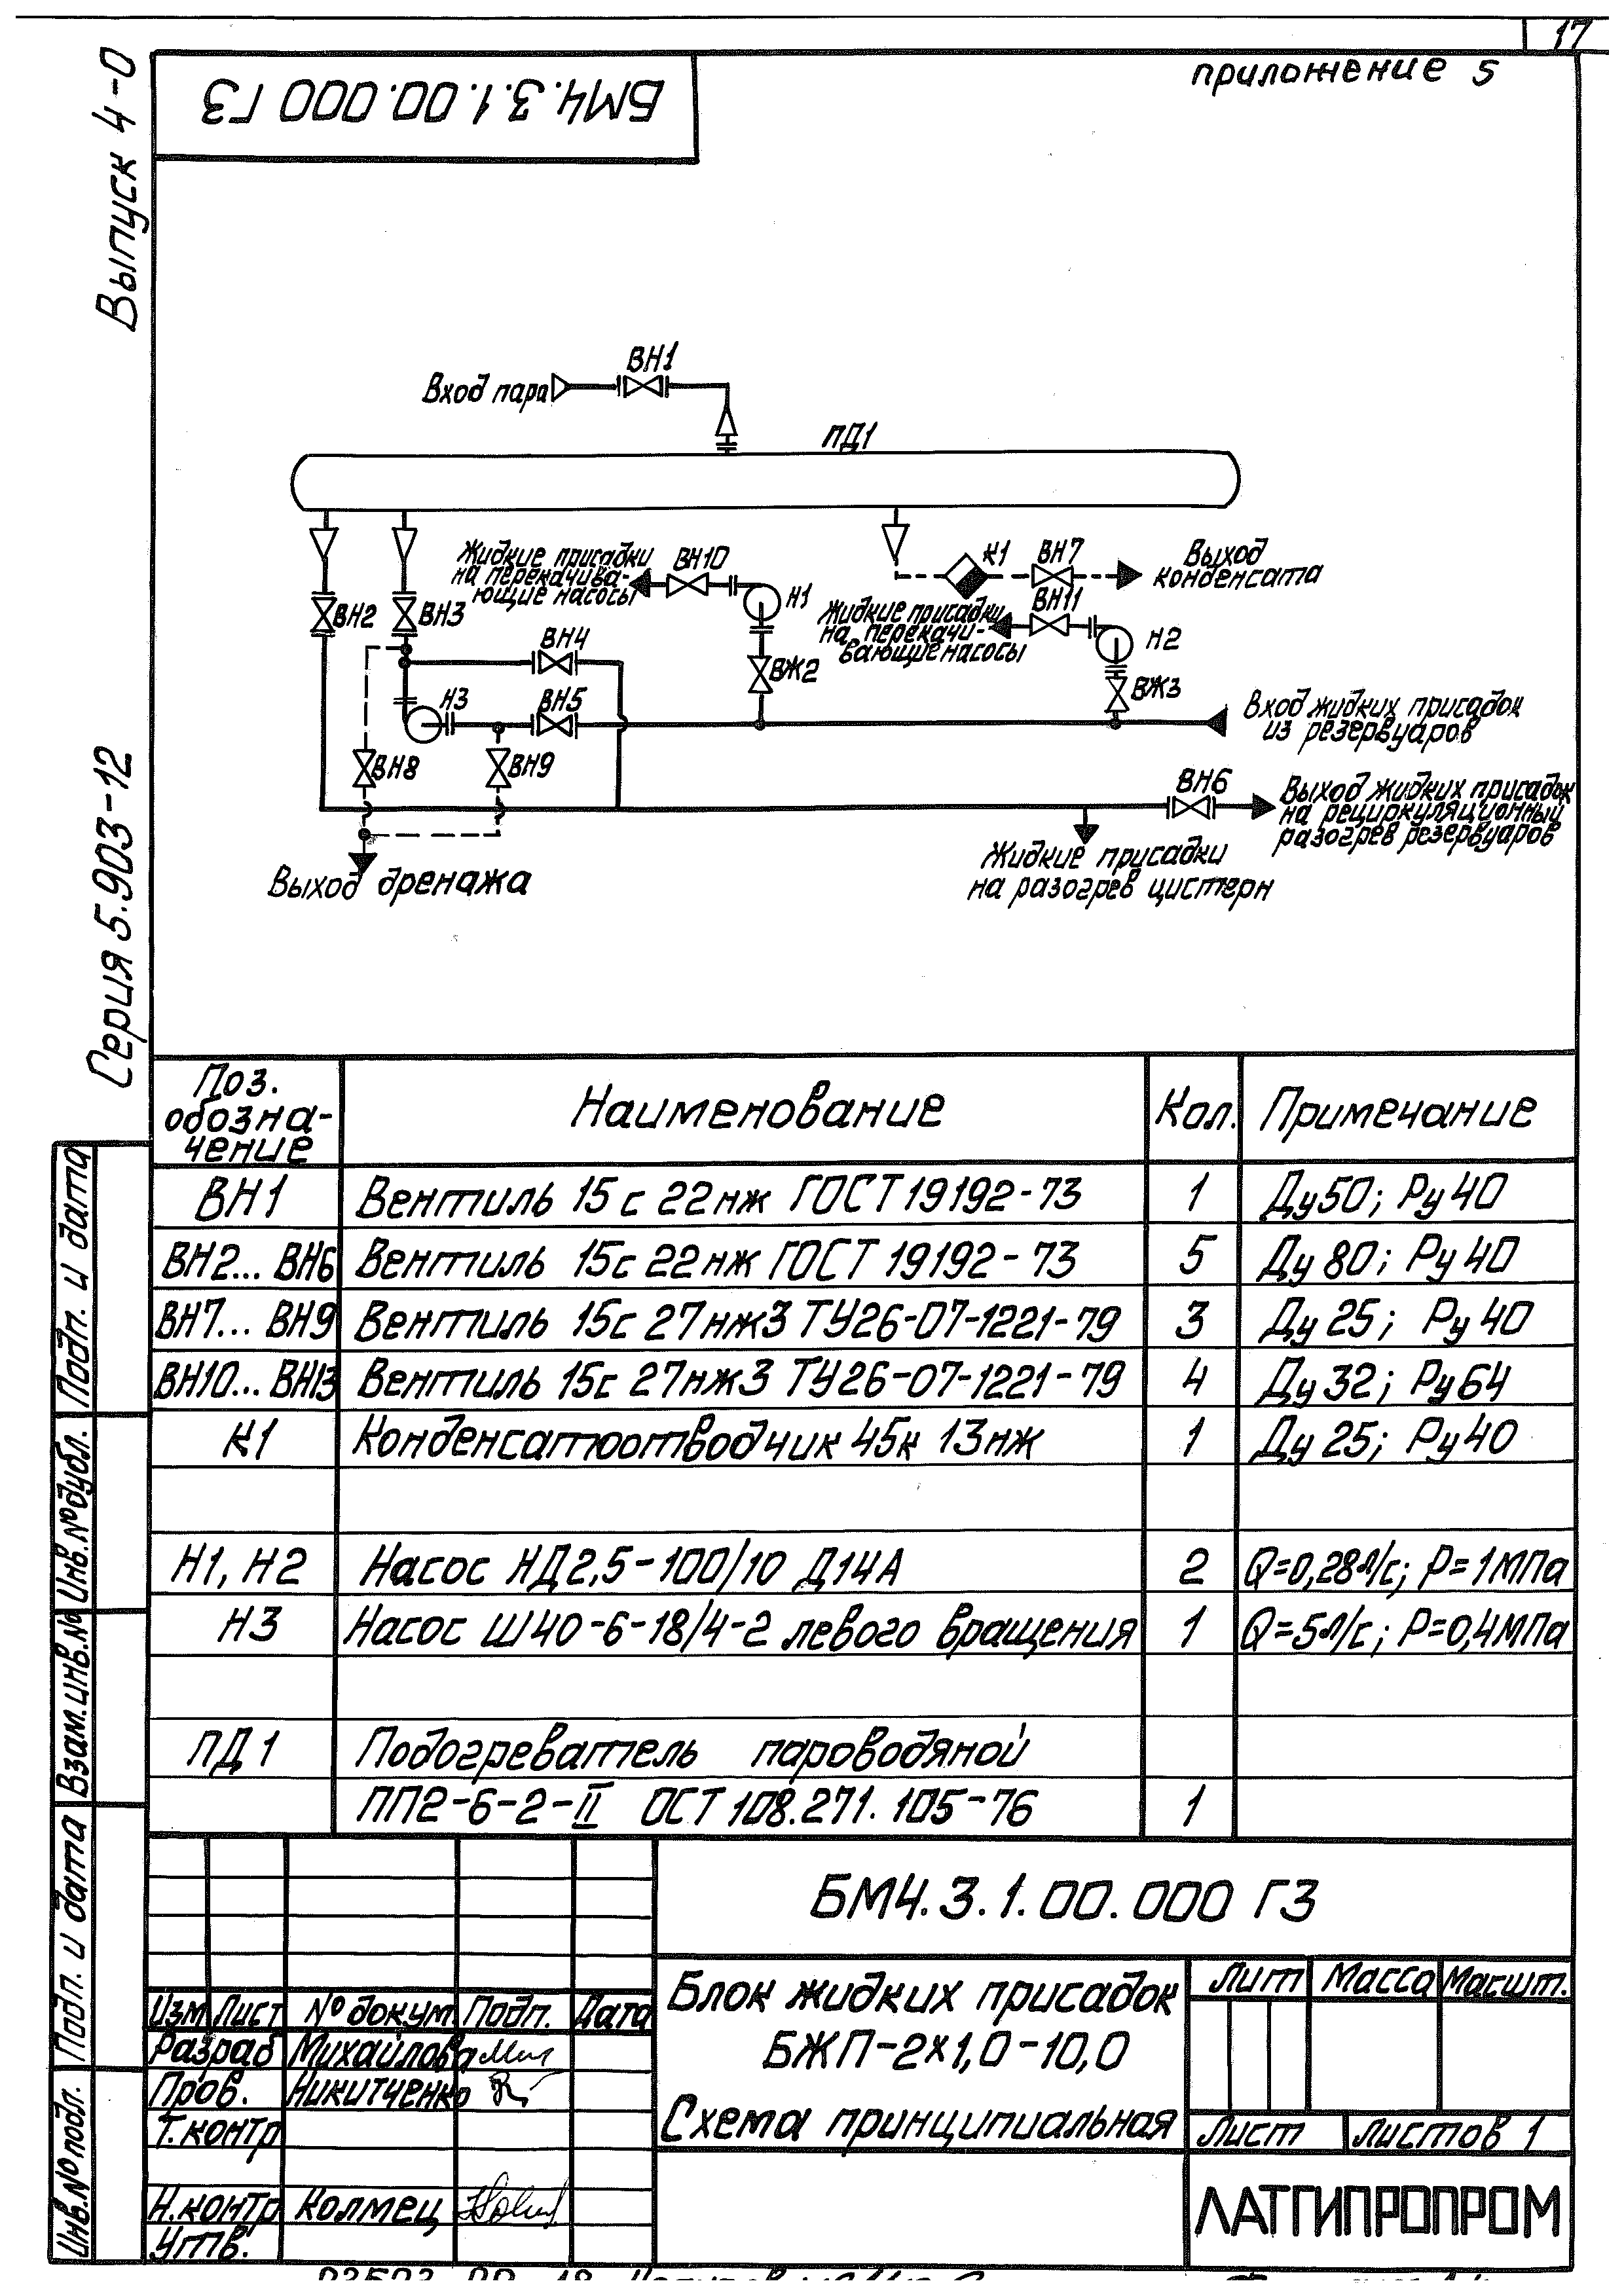 17
приложение 5
БМ4.3.1.00.000 ГЗ
Выпуск 4-0
Серия 5.903-12
ВН1
Вход пара
ПД1
Жидкие присадки
на перекачива-
ющие насосы
ВН10
Н1
К1
ВН7
Выход
конденсата
ВН2
ВН3
ВН4
ВЖ2
Жидкие присадки
на перекачи-
вающие насосы
ВН11
Н2
ВЖ3
Н3
ВН5
Вход жидких присадок
из резервуаров
ВН8
ВН9
ВН6
Выход жидких присадок
на рециркуляционный
разогрев резервуаров
Жидкие присадки
на разогрев цистерн
Выход дренажа
Поз. обозна-чение Наименование Кол. Примечание
ВН1 Вентиль 15с 22нж ГОСТ 19192-73 1 Ду50; Ру40
ВН2... ВН6 Вентиль 15с 22нж ГОСТ 19192-73 5 Ду 80; Ру 40
ВН7... ВН9 Вентиль 15с 27нж3 ТУ26-07-1221-79 3 Ду 25; Ру 40
ВН10... ВН13 Вентиль 15с 27нж3 ТУ26-07-1221-79 4 Ду 32; Ру 64
К1 Конденсатоотводчик 45к 13нж 1 Ду 25; Ру 40
Н1, Н2 Насос НД2,5-100/10 Д14А 2 Q=0,28л/с; Р=1МПа
Н3 Насос Ш40-6-18/4-2 левого вращения 1 Q=5л/с; Р=0,4МПа
ПД1 Подогреватель пароводяной
ПП2-6-2-II ОСТ 108.271.105-76 1
Подп. и дата
Инв.№дубл.
Взам.инв.№
Подп. и дата
Инв.№подл.
БМ4.3.1.00.000 ГЗ
Изм Лист № докум. Подп. Дата
Разраб Михайлова
Пров. Никитченко
Т.контр
Н.контр Колмец
Утв.
Блок жидких присадок
БЖП-2х1,0-10,0
Схема принципиальная
Лит Масса Масшт.
Лист Листов 1
ЛАТГИПРОПРОМ